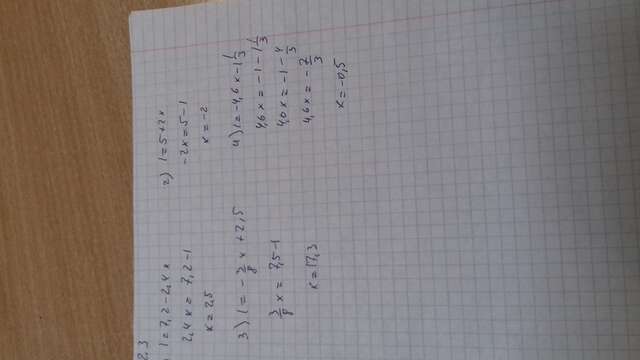 2,3
) 1=7,2-2,4x
2,4x = 7,2-1
x = 2,5
2) 1=5+2x
-2x=5-1
x=-2
3) 1= -3/8 x +2,5
3/8 x = 7,5-1
x=17,3
4) 1=-4,6x-1 1/3
4,6x = -1-1 1/3
4,6x = -1- 4/3
4,6x = - 7/3
x=-0,5